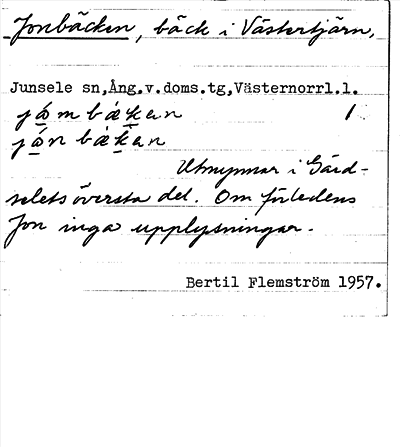 Jonbäcken, bäck i Västertjärn,
Junsele sn,Ång.v.doms.tg,Västernorrl.l.
jo̱mbæḵan 1
jo̱nbæḵan
Utmynnar i Gård-
selets översta del. Om förledens
Jon inga upplysningar.
Bertil Flemström 1957.